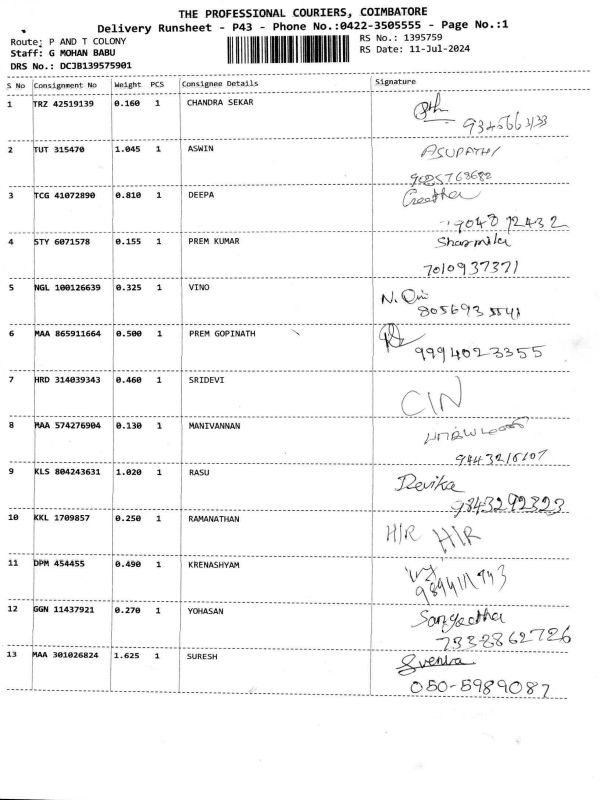 THE PROFESSIONAL COURIERS, COIMBATORE
Delivery Runsheet - P43 - Phone No.:0422-3505555 - Page No.:1
Route: P AND T COLONY
RS No.: 1395759
Staff: G MOHAN BABU
RS Date: 11-Jul-2024
DRS No.: DCJB139575901
S No Consignment No Weight PCS Consignee Details Signature
1 TRZ 42519139 0.160 1 CHANDRA SEKAR
2 TUT 315470 1.045 1 ASWIN
ASUPATHI
9625768682
3 TCG 41072890 0.810 1 DEEPA
Geetha
4 STY 6071578 0.155 1 PREM KUMAR
Sharmila
7010937371
5 NGL 100126639 0.325 1 VINO
N.
8056935541
6 MAA 865911664 0.500 1 PREM GOPINATH
9994023355
7 HRD 314039343 0.460 1 SRIDEVI
CIN
8 MAA 574276904 0.130 1 MANIVANNAN
9443216107
9 KLS 804243631 1.020 1 RASU
Devika
9843292323
10 KKL 1709857 0.250 1 RAMANATHAN
H/R H/R
11 DPM 454455 0.490 1 KRENASHYAM
12 GGN 11437921 0.270 1 YOHASAN
Sangeetha
7338862726
13 MAA 301026824 1.625 1 SURESH
050-5989087